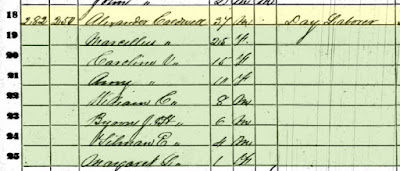 John " 2 M
18 282 250 Alexander Caldwell 37 M Day Laborer
19 Marcellus " 25 F
20 Caroline V " 15 F
21 Amy " 10 F
22 William C " 8 M
23 Byron J. H " 6 M
24 Tilman E " 4 M
25 Margaret L " 1 F